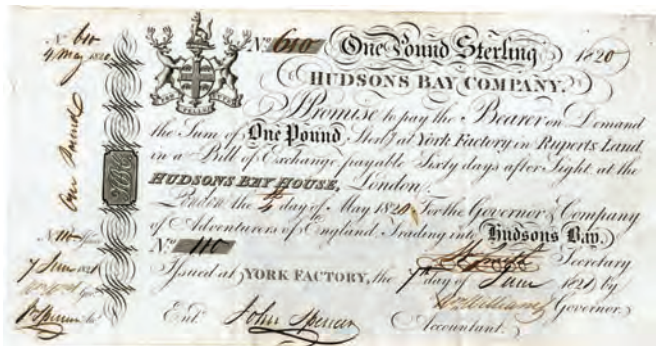 No. 610
4 May 1820
One Pound
HBC
7 June 1821
No. 610 One Pound Sterling 1820
HUDSONS BAY COMPANY.
PRO PELLE CUTEM
Promise to pay the Bearer on Demand
the Sum of One Pound Sterlg. at York Factory in Ruperts Land
in a Bill of Exchange payable Sixty days after Sight at the
HUDSONS BAY HOUSE, London.
London the 4th day of May 1820 For the Governor & Company
of Adventurers of England Trading into Hudsons Bay.
No. 110
Secretary
Issued at YORK FACTORY, the 7th day of June 1821 by
Wm Williams Governor.
Entd. John Spencer Accountant.